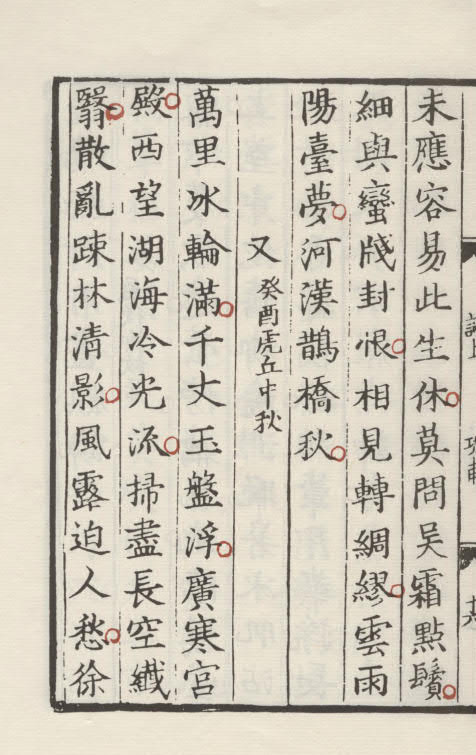 未應容易此生休莫問吳霜點鬢
細與蠻牋封恨相見轉綢繆雲雨
陽臺夢河漢鵲橋秋
又 癸酉虎丘中秋
萬里冰輪滿千丈玉盤浮廣寒宮
殿西望湖海冷光流掃盡長空纖
翳散亂疎林清影風露迫人愁徐